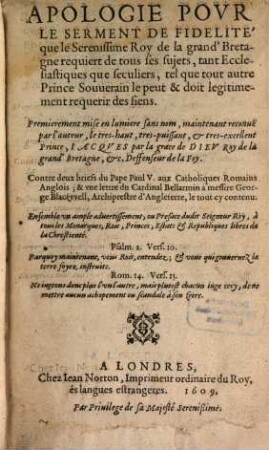 APOLOGIE POVR
LE SERMENT DE FIDELITE'
que le Serenissime Roy de la grand' Breta-
gne requiert de tous ses sujets, tant Eccle-
siastiques que seculiers, tel que tout autre
Prince Souuerain le peut & doit legitime-
ment requerir des siens.
Premierement mise en lumiere sans nom, maintenant reconuë
par l'auteur, le tres-haut, tres-puissant, & tres-excellent
Prince, IACQVES par la grace de DIEV Roy de la
grand' Bretagne, &c. Deffenseur de la Foy.
Contre deux briefs du Pape Paul V. aux Catholiques Romains
Anglois; & vne lettre du Cardinal Bellarmin à messire Geor-
ge Blacwell, Archiprestre d'Angleterre, le tout cy contenu.
Ensemble vn ample aduertissement, ou Preface dudit Seigneur Roy, à
tous les Monarques, Rois, Princes, Estats & Republiques libres de
la Chrestienté.
Psalm. 2. Vers. 10.
Parquoy maintenant, vous Rois, entendez; & vous qui gouuernez la
terre soyez instruits.
Rom. 14. Vers. 13.
Ne iugeons donc plus l'vn l'autre, mais plustost chacun iuge cecy, de ne
mettre aucun achopement ou scandale à son frere.
A LONDRES,
Chez Iean Norton, Imprimeur ordinaire du Roy,
és langues estrangeres. 1609.
Par Priuilege de sa Majesté Serenissime.